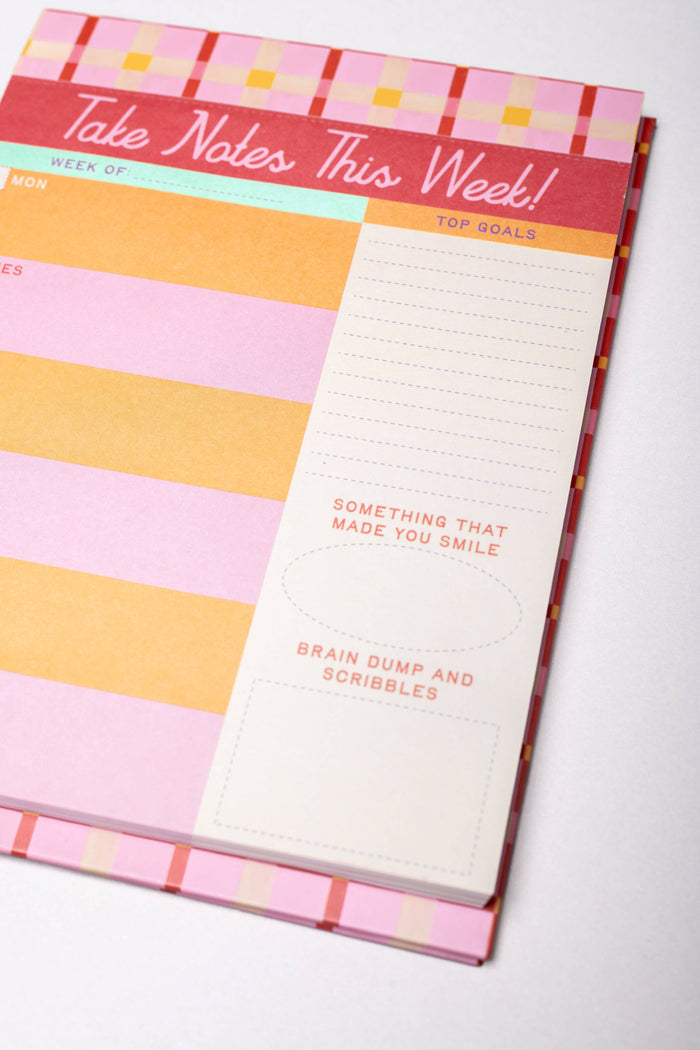 Take Notes This Week!
WEEK OF:
MON
TOP GOALS
SOMETHING THAT
MADE YOU SMILE
BRAIN DUMP AND
SCRIBBLES